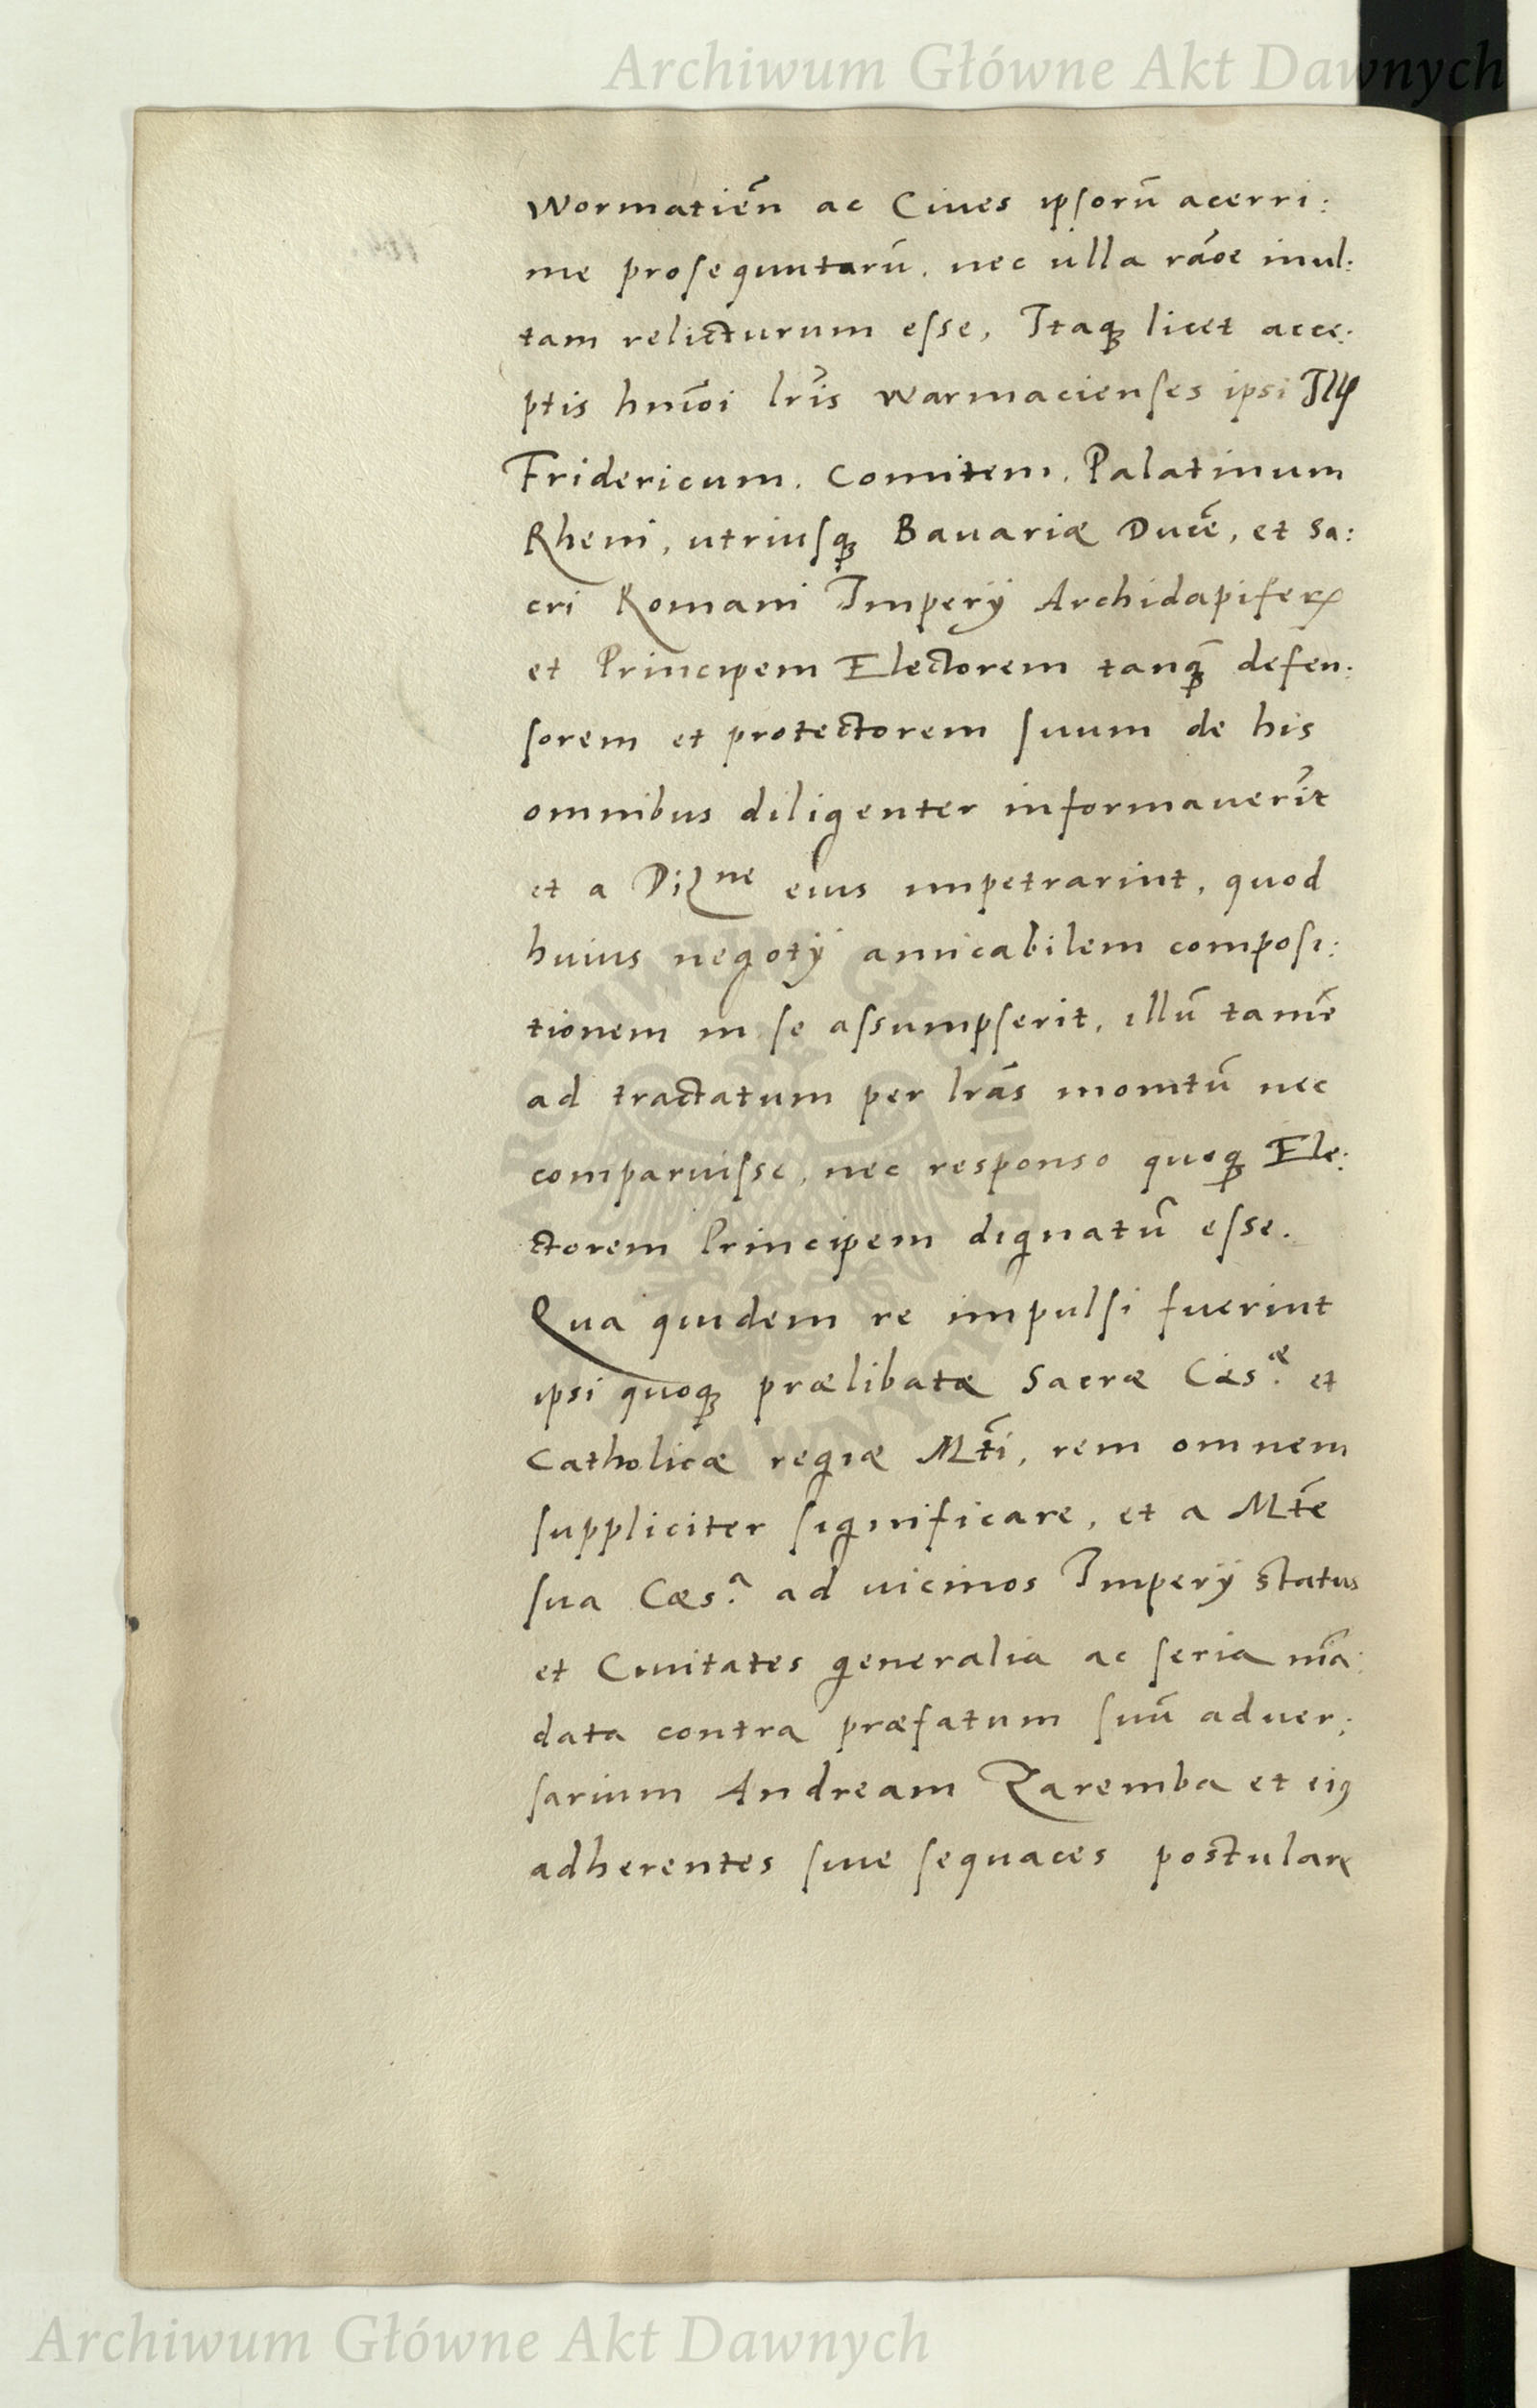 Archiwum Główne Akt Dawnych
Wormatien̄ ac Ciues ipsorū acerri:
me prosequuturū, nec ulla rāoe inul:
tam relicturum esse, Itaqꝫ licet acce:
ptis hmōi lr̄is Warmacienses ipsi
Fridericum. Comitem. Palatinum
Rheni, utriusqꝫ Bauariæ Ducē, et Sa:
cri Romani Imperÿ Archidapiferꝝ
et Principem Electorem tanqꝫ̄ defen:
sorem et protectorem suum de his
omnibus diligenter informauerīt
et a Dilne eius impetrarint, quod
huius negotÿ amicabilem composi:
tionem in se assumpserit, illū tamē
ad tractatum per lrās monitū nec
comparuisse, nec responso quoqꝫ Ele:
ctorem Principem dignatū esse.
Qua quidem re impulsi fuerint
ipsi quoqꝫ prælibatæ Sacræ Cæs.æ et
Catholicæ regiæ Mti̅, rem omnem
suppliciter significare, et a Mtē
sua Cæs.a ad uicinos Imperÿ status
et Ciuitates generalia ac seria mā:
data contra præfatum suū aduer:
sarium Andream Zaremba et eiꝰ
adherentes siue sequaces postulare
ARCHIWUM GŁÓWNE AKT DAWNYCH
Archiwum Główne Akt Dawnych